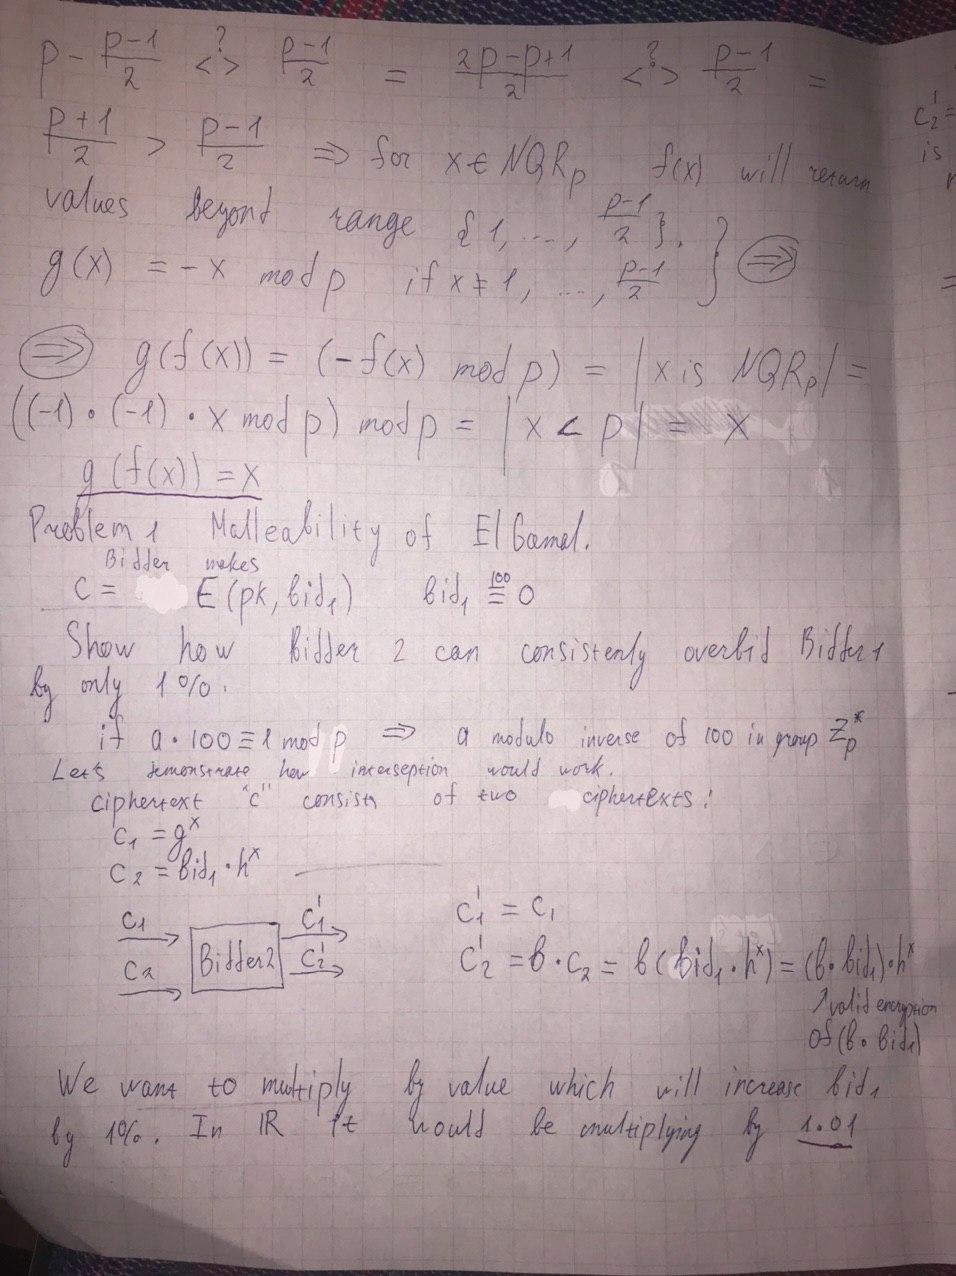 p - (p-1)/2 <?> (p-1)/2 = (2p-p+1)/2 <?> (p-1)/2 =
(p+1)/2 > (p-1)/2 => for x ∈ NQR_p f(x) will return
values beyond range {1, ..., (p-1)/2}. } ⇒
g(x) = -x mod p if x ≠ 1, ..., (p-1)/2
⇒ g(f(x)) = (-f(x) mod p) = |x is NQR_p| =
((-1) • (-1) • x mod p) mod p = |x < p| = x
g(f(x)) = x
Problem 1 Malleability of El Gamal.
Bidder makes
c = E(pk, bid₁) bid₁ ≡¹⁰⁰ 0
Show how Bidder 2 can consistenly overbid Bidder 1
by only 1%.
if a • 100 ≡ 1 mod p => a modulo inverse of 100 in group Z_p^*
Let's demonstrate how interseption would work.
ciphertext "c" consists of two ciphertexts:
c₁ = g^x
c₂ = bid₁ • h^x
c₁ c₁'
c₂ Bidder2 c₂'
c₁' = c₁
c₂' = b • c₂ = b(bid₁ • h^x) = (b • bid₁) • h^x
↗ valid encryption
of (b • bid₁)
We want to multiply by value which will increase bid₁
by 1%. In ℝ it would be multiplying by 1.01
c₂' =
is